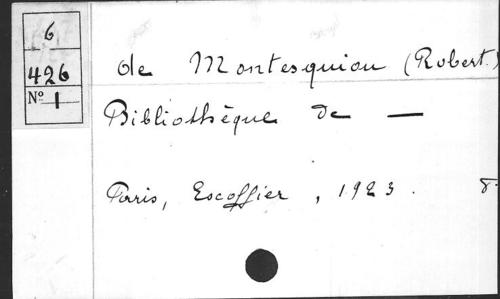 6
426
Nº 1
de Montesquiou (Robert.)
Bibliothèque de —
Paris, Escoffier, 1923. 8.